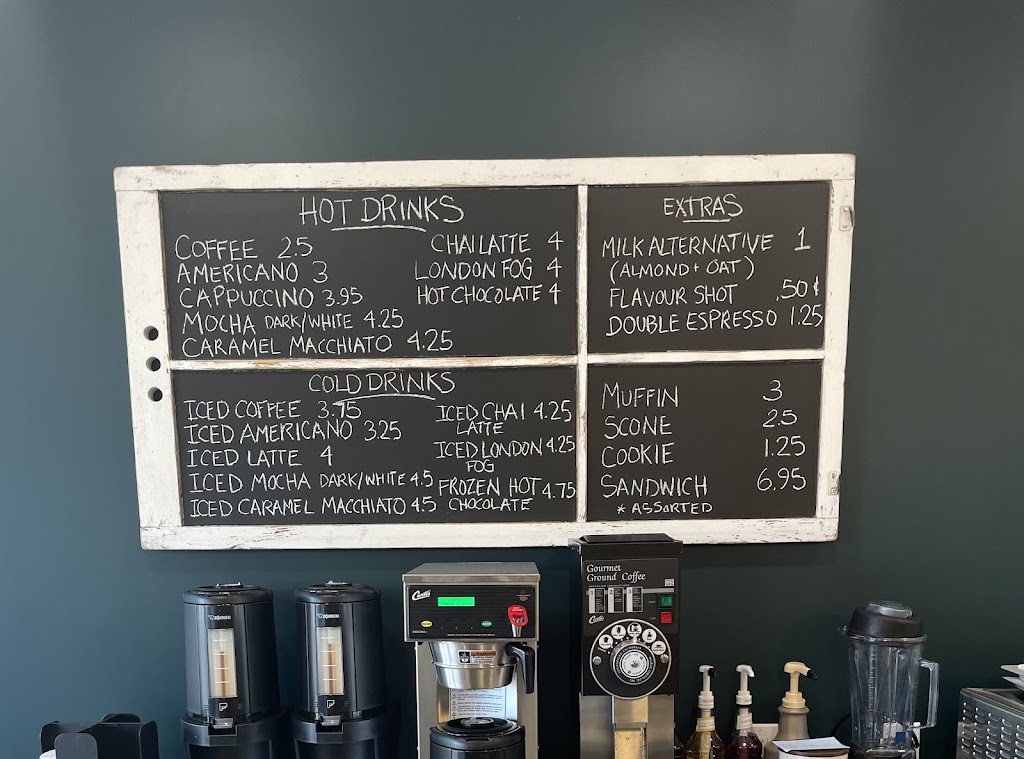 HOT DRINKS
COFFEE 2.5
AMERICANO 3
CAPPUCCINO 3.95
MOCHA DARK/WHITE 4.25
CARAMEL MACCHIATO 4.25
CHAI LATTE 4
LONDON FOG 4
HOT CHOCOLATE 4
EXTRAS
MILK ALTERNATIVE 1
(ALMOND + OAT)
FLAVOUR SHOT .50¢
DOUBLE ESPRESSO 1.25
COLD DRINKS
ICED COFFEE 3.75
ICED AMERICANO 3.25
ICED LATTE 4
ICED MOCHA DARK/WHITE 4.5
ICED CARAMEL MACCHIATO 4.5
ICED CHAI 4.25
LATTE
ICED LONDON 4.25
FOG
FROZEN HOT 4.75
CHOCOLATE
MUFFIN 3
SCONE 2.5
COOKIE 1.25
SANDWICH 6.95
* ASSORTED
Gourmet
Ground Coffee
Curtis
Curtis
ZOJIRUSHI
ZOJIRUSHI